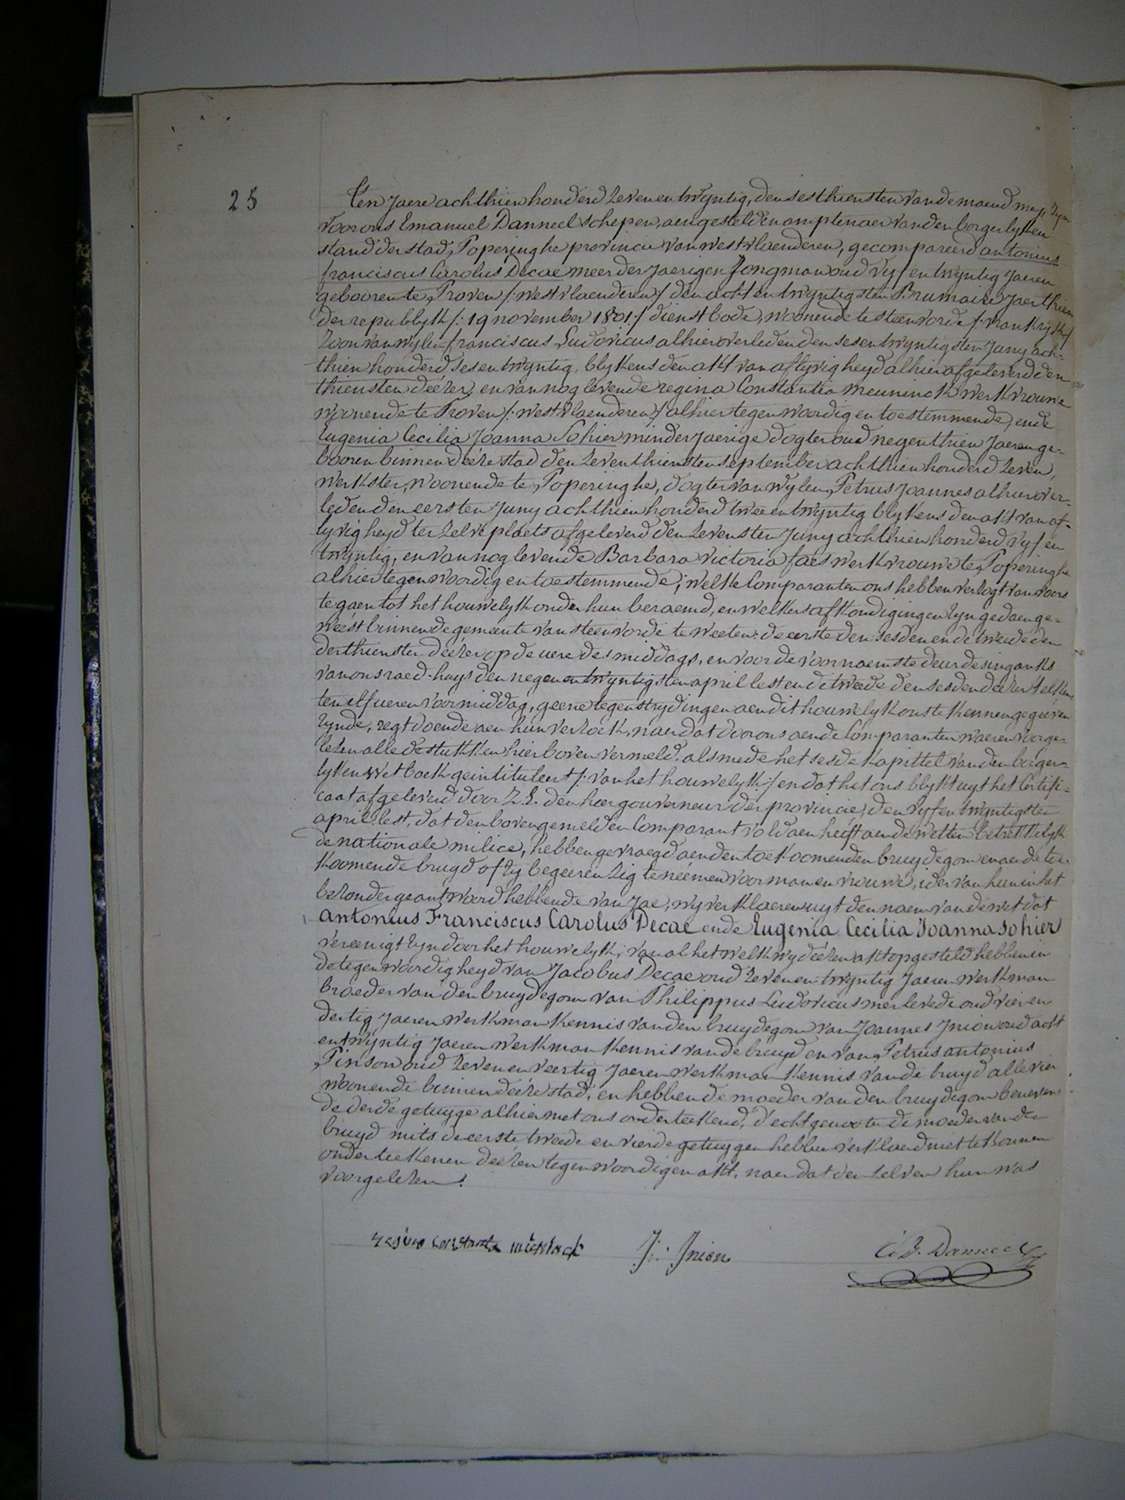 25
Ten jaere achthien honderd zeven en twyntig, den sesthiensten van de maend mey zyn
voor ons Emanuel Danneel schepen, aengestelden amptenaer van den borgerlyken
stand der stad, Poperinghe provincie van westvlaenderen, gecompareerd antonius
franciscus Carolus Decae meerderjaerigen Jongman oud vyf en twyntig Jaeren
gebooren te Proven /: westvlaenderen :/ den acht en twyntigsten Brumaire Jaer thien
der republyk /: 19 november 1801 :/ dienstbode, woonende te steenvorde /: vrankryk :/
Zoon van wylen franciscus Ludovicus alhier overleden den sesentwyntigsten Juny ach-
thien honderd ses en twyntig, blykens den akt van aflyvigheyd alhier afgeleverd den
thiensten deézer, en van nog levende regina Constantia meuninck werkvrouwe
woonende te Proven /: westvlaenderen :/ alhier tegenwoordig en toestemmende, ende
Eugenia Cecilia Joanna Sohier minderjaerige dogter oud negenthien Jaeren ge-
booren binnen deéze stad den zeventhiensten september achthien honderd zeven,
werkster, woonende te Poperinghe, dogter van wylen, Petrus Joannes alhier over-
leden den eersten Juny achthien honderd twee en twyntig blykens den akt van af-
lyvigheyd ter zelve plaets afgeleverd den zevensten Juny achthien honderd vyf en
twyntig, en van nog levende Barbara victoria faes werkvrouwe te Poperinghe
alhier tegenwoordig en toestemmende, welke Comparanten ons hebben verzogt van voors
te gaen tot het houwelyk onder hun beraemd, en welkers afkondigingen zyn gedaen ge-
weest binnen de gemeente van steenvorde te weeten de eerste den sesden en de tweede den
derthiensten deézer op de uere des middags, en voor de voornaemste deur des ingank's
van ons raed-huys den negen en twyntigsten april lest en de tweede den sesden deézer telken
ten elf ueren voormiddag, geene tegenstrydingen aen dit houwelyk ons te kennen gegeéven
zynde, regt doende aen hun verzoek, naer dat door ons aen de Comparanten waeren voorge-
lezen alle de stukken hier boven vermeld, alsmede het sesde kapittel van den borger-
lyken wetboek geintituleert /: van het houwelyk :/ en dat het ons blykt uyt het Certifi-
caat afgeleverd door Z.E. den heer gouverneur der provincie, den vyf en twyntigsten
april lest, dat den bovengemelden Comparant voldaen heeft aen de wetten betrekkelyk
de nationale milice, hebben gevraegd aen den toekoomenden bruydegom en aen de toe-
koomende bruyd of zy begeeren zig te neémen voor man en vrouwe, ider van hun in het
bezonder geantwoord hebbende van Jae, wy verklaeren uyt den naem van de wet dat
antonius Franciscus Carolus Decae ende Eugenia Cecilia Joanna Sohier
vereenigt zyn door het houwelyk, van al het welk wy deézen akt opgesteld hebben in
de tegenwoordigheyd van Jacobus Decae oud zeven en twyntig Jaeren werkman
broeder van den bruydegom van Philippus Ludovicus merlevede oud vier en
dertig Jaeren werkman kennis van den bruydegom van Joannes Inion oud acht
en twyntig Jaeren werkman kennis van de bruyd en van Petrus antonius
Pinson oud zeven en veertig Jaeren werkman kennis van de bruyd alle vier
woonende binnen deéze stad, en hebben de moeder van den bruydegom benevens
de derde getuyge alhier met ons onderteekend, d'echtgenooten de moeder van de
bruyd mits de eerste tweede en vierde getuygen hebben verklaerd niet te konnen
onderteekenen deézen tegenwoordigen akt, naer dat den zelven hun was
voorgelezen.
regina constantia meuninck J: Inion E: J. Danneel